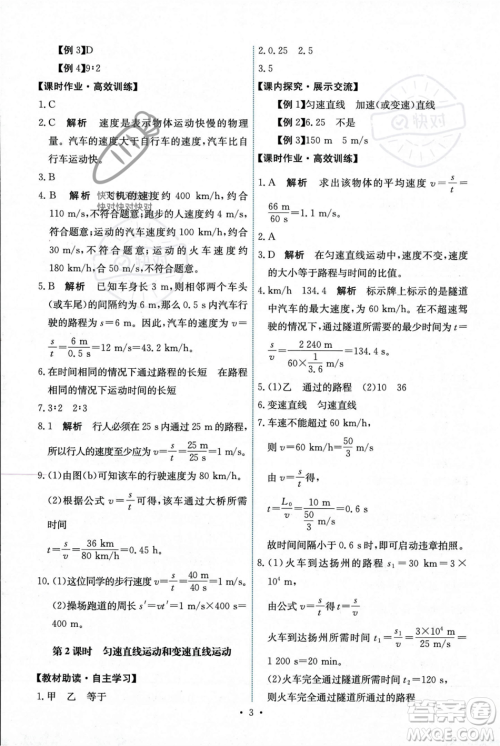 【例 3】D
【例 4】9∶2
【课时作业·高效训练】
1. C
2. B 解析 速度是表示物体运动快慢的物理
量。汽车的速度比自行车的大,所以汽车比自
行车运动快。
3. B
4. A 解析 飞机的速度约 400 km/h,约合
110 m/s,不符合题意;跑步的人速度约 5 m/s,
符合题意;汽车运动的速度约 100 km/h,约合
30 m/s,不符合题意;运动的火车速度约
180 km/h,不符合题意。
5. B 解析 已知车身长约 3 m,前后相邻两个车头
(或车尾)的间隔约为 6 m,那么 0.5 s 内汽车行
驶的路程为 s=6 m。因此,汽车的速度为 v=
s/t=6 m/0.5 s=12 m/s=43.2 km/h。
6. 在时间相同的情况下运动路程的长短 在路程
相同的情况下运动时间的长短
7. 3∶2 2∶3
8. 1 解析 行人必须在 25 s 内通过 25 m 的路程,
所以行人的速度至少应为 v=s/t=25 m/25 s=1 m/s。
9. (1)由图(b)可知该车的行驶速度为 80 km/h。
(2)由公式 v=s/t 可得,该车通过大桥所需
时间
t=s/v=36 km/80 km/h=0.45 h。
10. (1)这位同学的步行速度 v=s/t=40 m/40 s=1 m/s。
(2)操场跑道的周长 s′=vt′=1 m/s×200 s=
200 m。
第 2 课时 匀速直线运动和变速直线运动
【教材助读·自主学习】
1. 甲 乙 等于
2. 0.25 2.5
3. 5
【课内探究·展示交流】
【例 1】匀速直线 加速(或变速)直线
【例 2】6.25 不是
【例 3】150 m 5 m/s
【课时作业·高效训练】
1. A 解析 求出该物体的平均速度 v=s/t=
66 m/60 s=1.1 m/s。
2. A
3. D 解析 在匀速直线运动中,速度的大小等于
路程与时间的比值。
4. km/h 134.4 解析 标示牌上标示的是隧道
中汽车的最大速度为 60 km/h。在不超速驾
驶的情况下,通过隧道所需的最少时间 t=
s/v=2 240 m/(60/3.6 m/s)=134.4 s。
5. (1)乙 通过的路程 (2)10 36
6. 变速直线 匀速直线
7. 车速不能超过 60 km/h,即 50/3 m/s,
则 v=60 km/h=50/3 m/s
由 v=s/t 得,
t=L₀/v=10 m/(50/3 m/s)=0.6 s
故时间间隔小于 0.6 s 时,可启动违章拍照。
8. (1)火车到达扬州的路程 s₁=30 km=3×
10⁴ m,
由 公式 v=s/t 得:
火车到达扬州的时间 t₁=s₁/v=3×10⁴ m/25 m/s=
1 200 s=20 min。
则火车到达扬州的时间是 10:30。